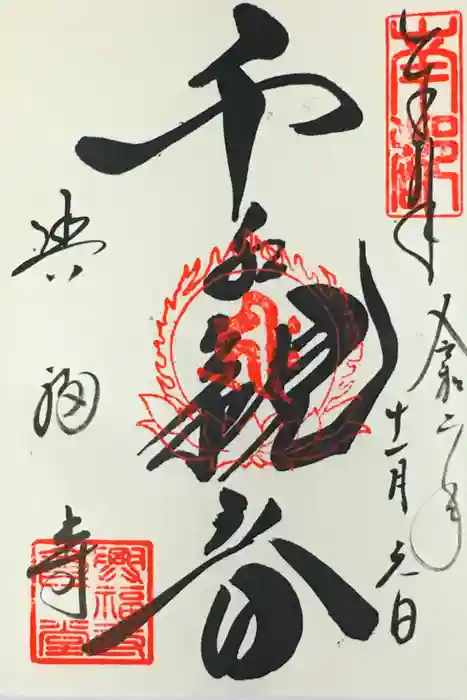 南都
奉拝
令和二年
十一月六日
千手観音
興福寺
興福寺
食堂